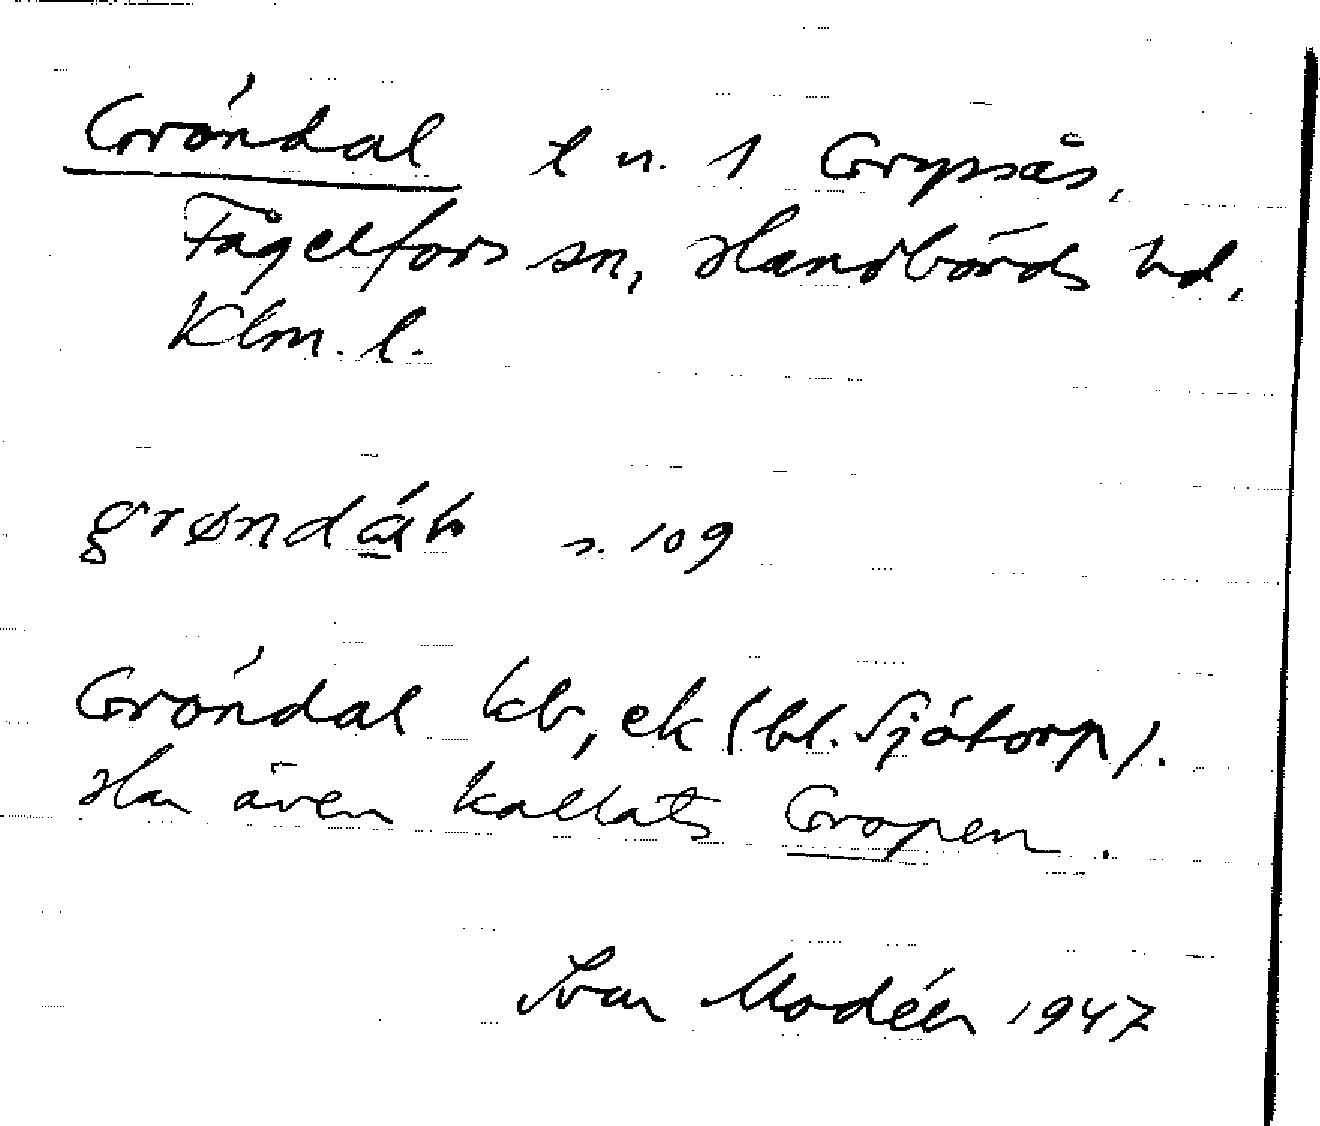 Gröndal t u. 1 Grypsås,
Fågelfors sn, Handbörds hd,
Klm. l.
s. 109
Gröndal kb, ek (bl. Sjötorp).
Har även kallats Gropen.
Ivar Modéer 1947